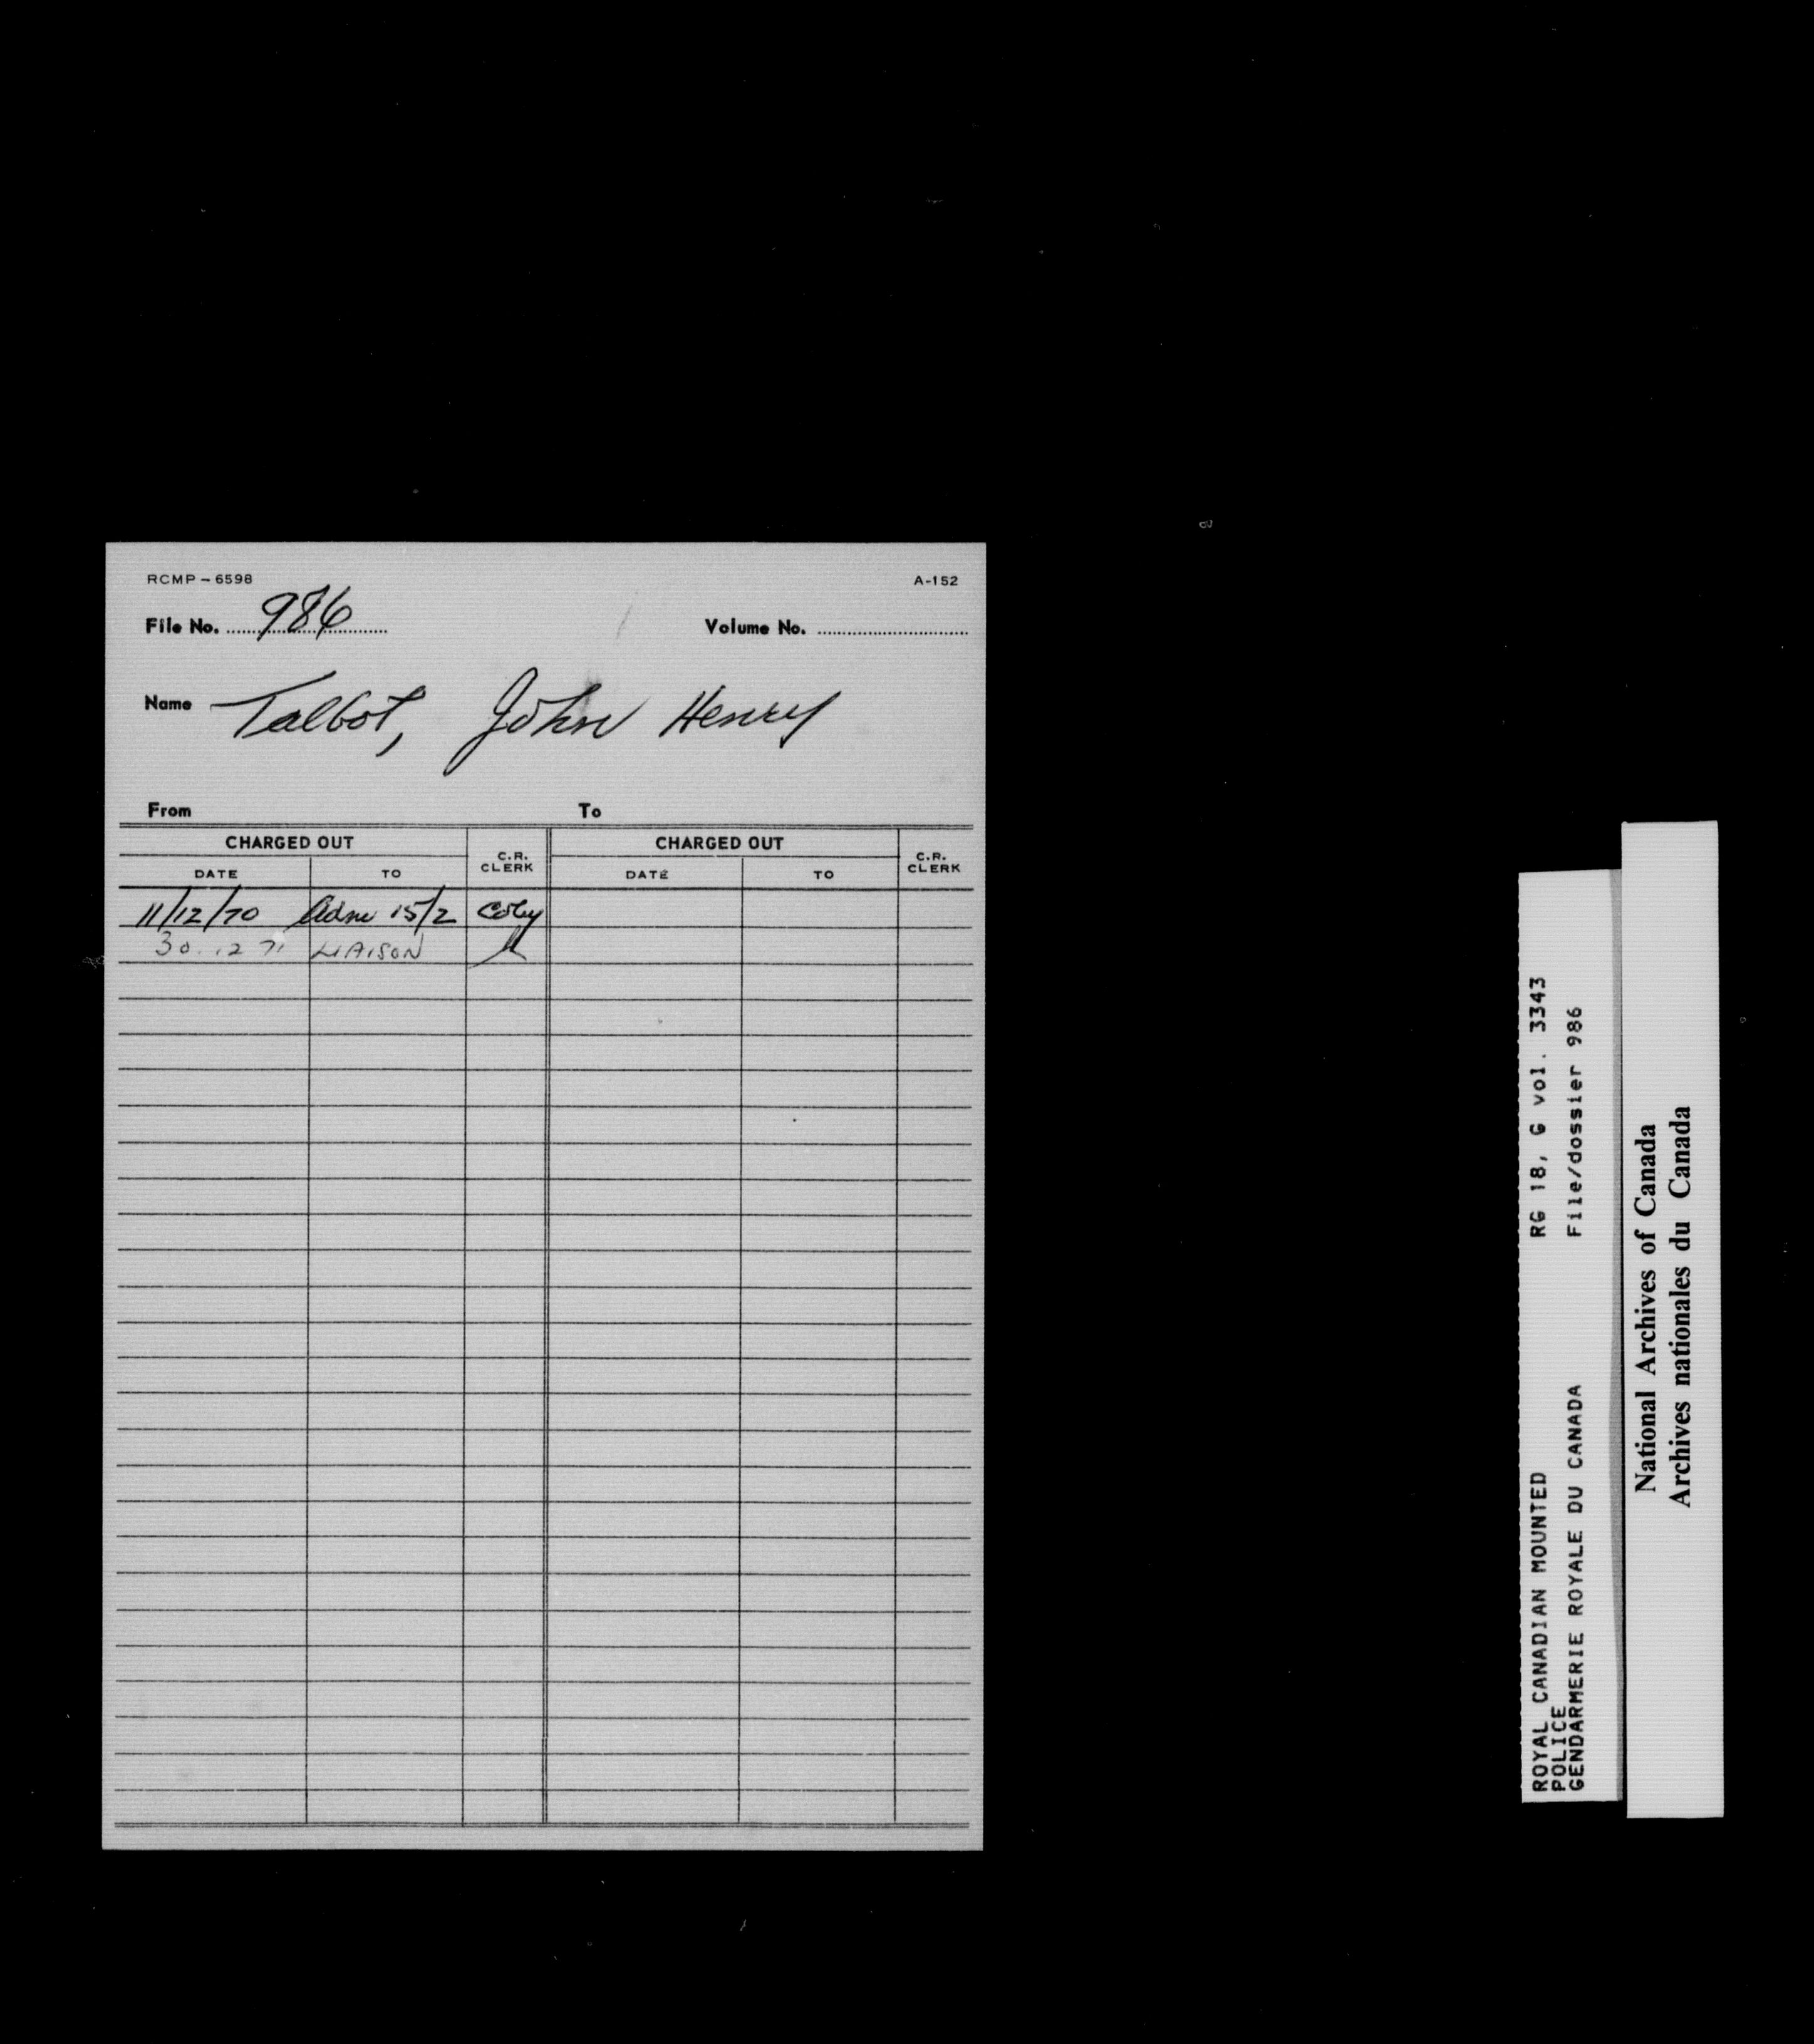 RCMP - 6598 A-152
File No. 986 Volume No.
Name Talbot, John Henry
From To
CHARGED OUT C.R. CLERK CHARGED OUT C.R. CLERK
DATE TO DATE TO
11/12/70 Adm 15/2 Coby
30.12 71 LIAISON
ROYAL CANADIAN MOUNTED RG 18, G vol. 3343
POLICE
GENDARMERIE ROYALE DU CANADA File/dossier 986
National Archives of Canada
Archives nationales du Canada